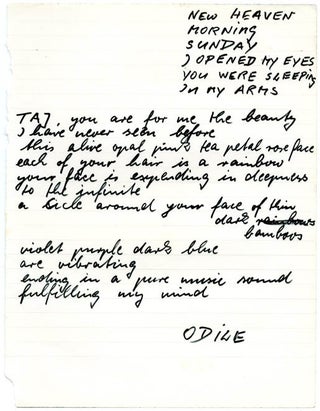 NEW HEAVEN
MORNING
SUNDAY
I OPENED MY EYES
YOU WERE SLEEPING
IN MY ARMS
TAJ, you are for me the beauty
I have never seen before
this alive opal pink tea petal rose face
each of your hair is a rainbow
your face is expending in deepness
to the infinite
a sicle around your face of thin
dark rainbows
bamboos
violet purple dark blue
are vibrating
ending in a pure music sound
fulfilling my mind
ODILE